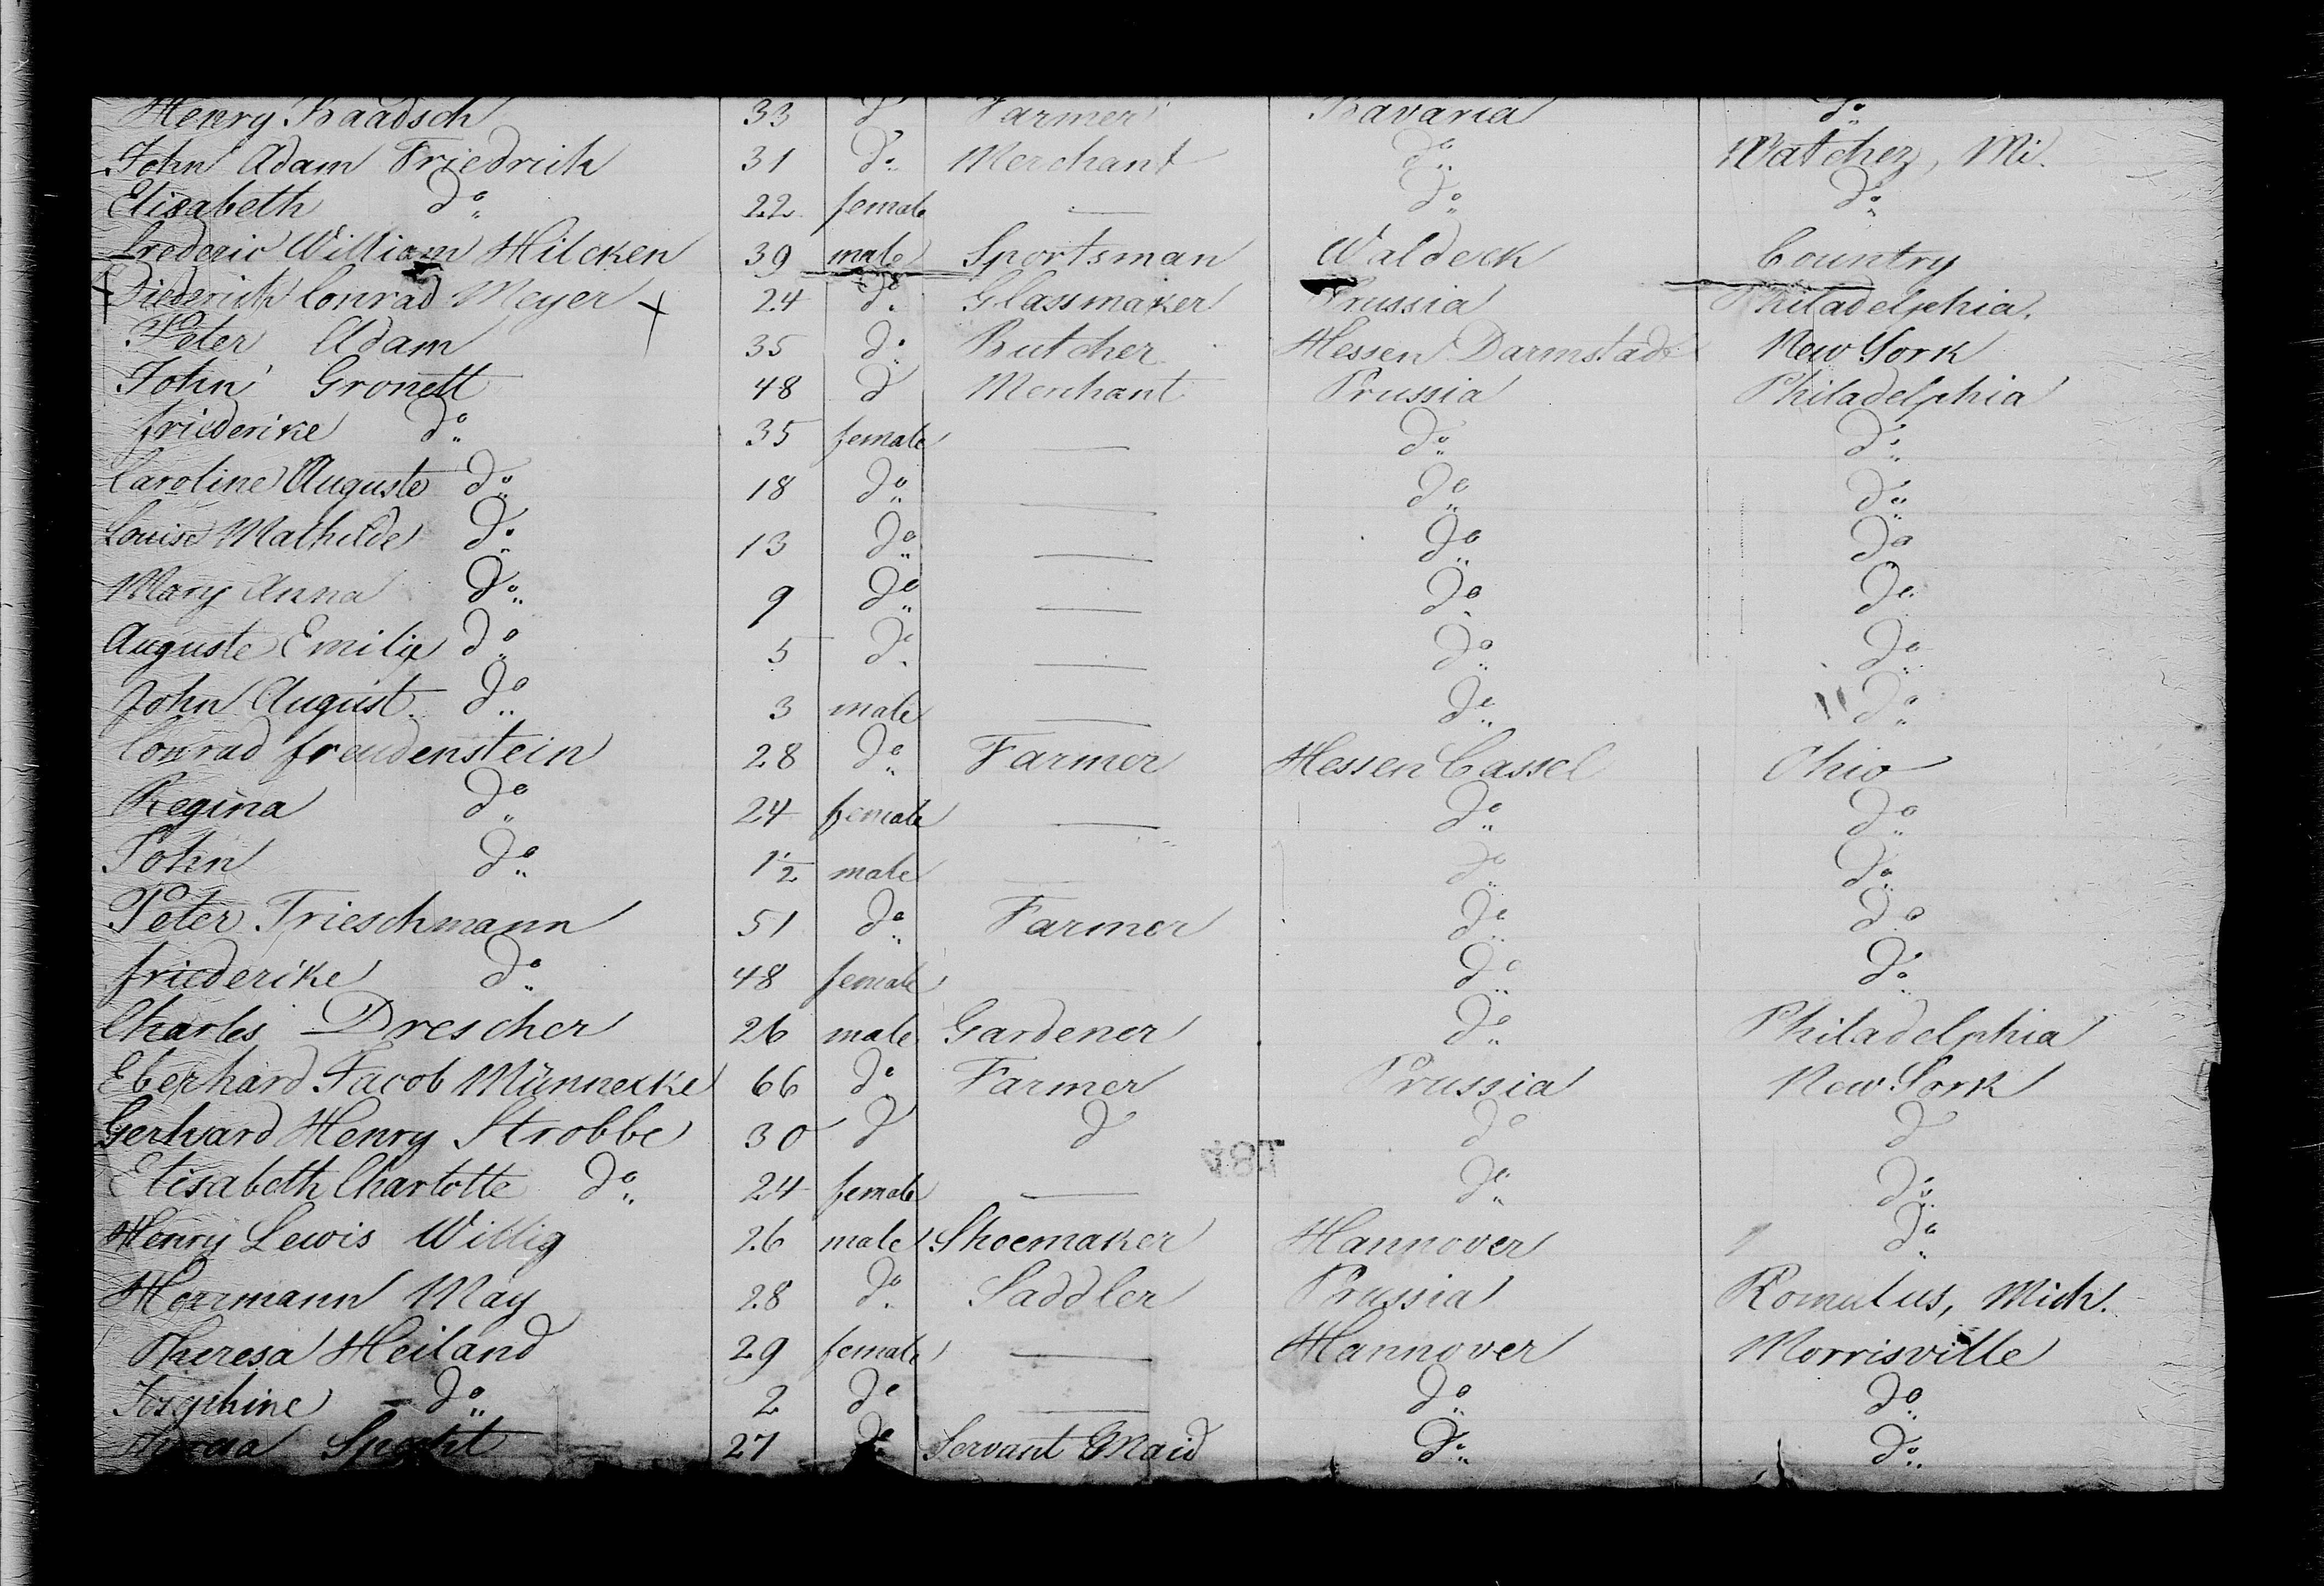 Henry Baadsch 33 do Farmer Bavaria do
John Adam Friedrich 31 do Merchant do Natchez, Mi.
Elisabeth do 22 female — do do
Frederic William Hilcken 39 male Sportsman Waldeck Country
Diederich Conrad Meyer x 24 do Glassmaker Prussia Philadelphia.
Peter Adam 35 do Butcher Hessen Darmstadt New York
John Gronett 48 do Merchant Prussia Philadelphia
friederike do 35 female — do do
Caroline Auguste do 18 do — do do
Louise Mathilde do 13 do — do do
Mary Anna do 9 do — do do
Auguste Emilie do 5 do — do do
John August do 3 male — do do
Conrad freudenstein 28 do Farmer Hessen Cassel Ohio
Regina do 24 female — do do
John do 1½ male — do do
Peter Trieschmann 51 do Farmer do do
friederike do 48 female — do do
Charles Drescher 26 male Gardener do Philadelphia
Eberhard Jacob Münnecke 66 do Farmer Prussia New York
Gerhard Henry Strobbe 30 do do do do
Elisabeth Charlotte do 24 female — do do
Henry Lewis Willig 26 male Shoemaker Hannover do
Herrmann May 28 do Saddler Prussia Romulus, Mich.
Theresa Heiland 29 female — Hannover Morrisville
Josephine do 2 do — do do
Specht 27 do Servant Maid do do